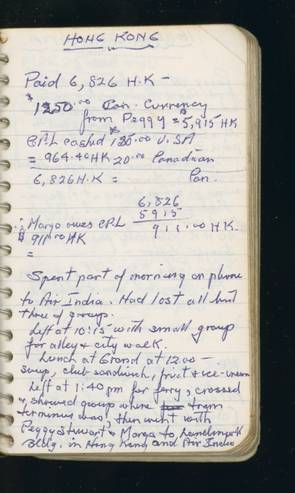 HONG KONG
Paid 6,826 H.K -
$1250.00 Can. Currency
from Peggy = 5,915 HK
ERL cashed $125.00 U.S.A
= 964.40HK 20.00 Canadian
6,826 H.K = Can.
6,826
5915
911.00 H.K.
∴ Margo owes ERL
$911.00 HK
=
Spent part of morning on phone
to Air India. Had lost all but
three of group.
Left at 10:15 with small group
for alley & city walk.
Lunch at Grand at 12:00 -
soup, club sandwich, fruit & ice-cream
Left at 1:40 pm for ferry, crossed
& showed group where tram
terminus was, then went with
Peggy Stewart & Margo to Landmark
Bldg. in Hong Kong and Air India